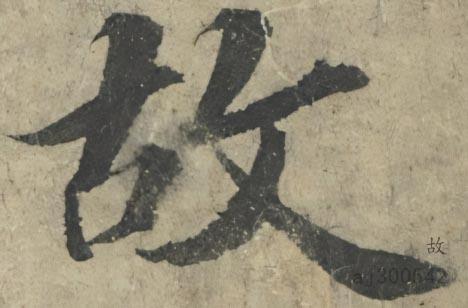 故
故
aj300642